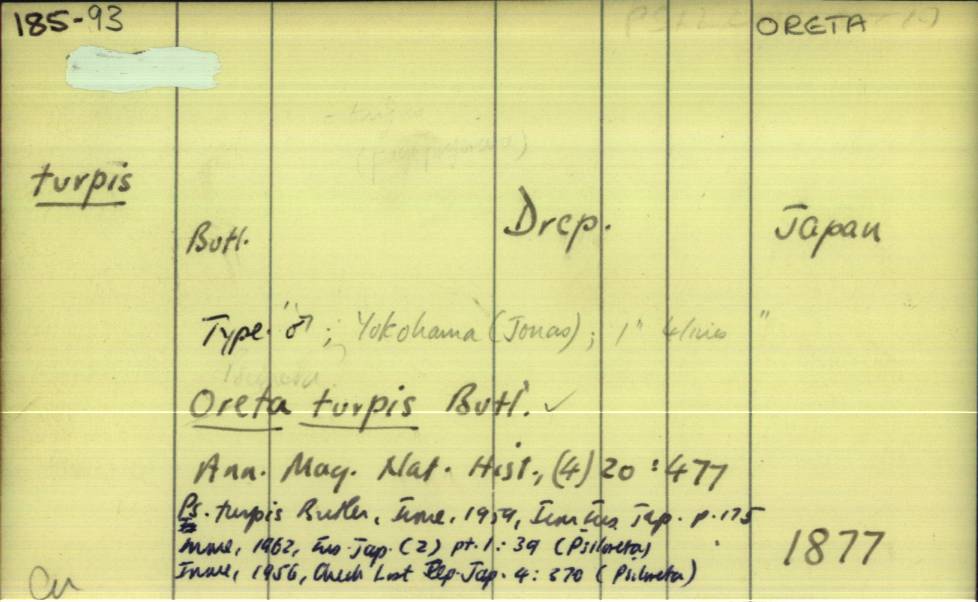 185-93
ORETA
turpis
Butl.
Drep.
Japan
Type "♂; Yokohama (Jonas); 1" 4 lines"
Oreta turpis Butl. ✓
Ann. Mag. Nat. Hist., (4) 20 : 477
1877
Ps. turpis Butler, Inoue, 1959, Icon Ins Jap. p. 175
Inoue, 1962, Ins. Jap. (2) pt. 1 : 39 (Psiloreta)
Inoue, 1956, Check List Lep. Jap. 4 : 370 (Psiloreta)